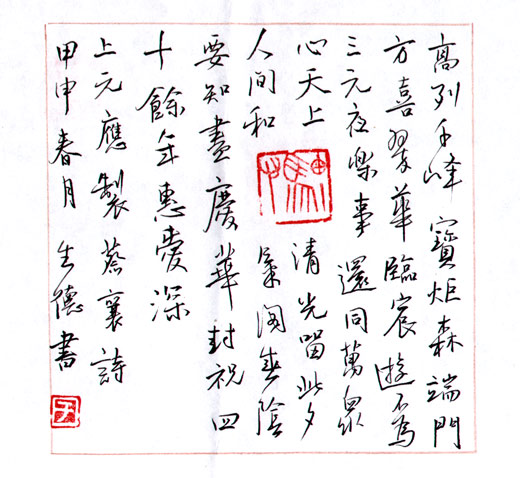 高列千峰寶炬森端門
方喜翠華臨宸遊不為
三元夜樂事還同萬衆
心天上清光留此夕
人間和氣閣春陰
要知盡慶華封祝四
十餘年惠愛深
上元應製蔡襄詩
甲申春月生德書